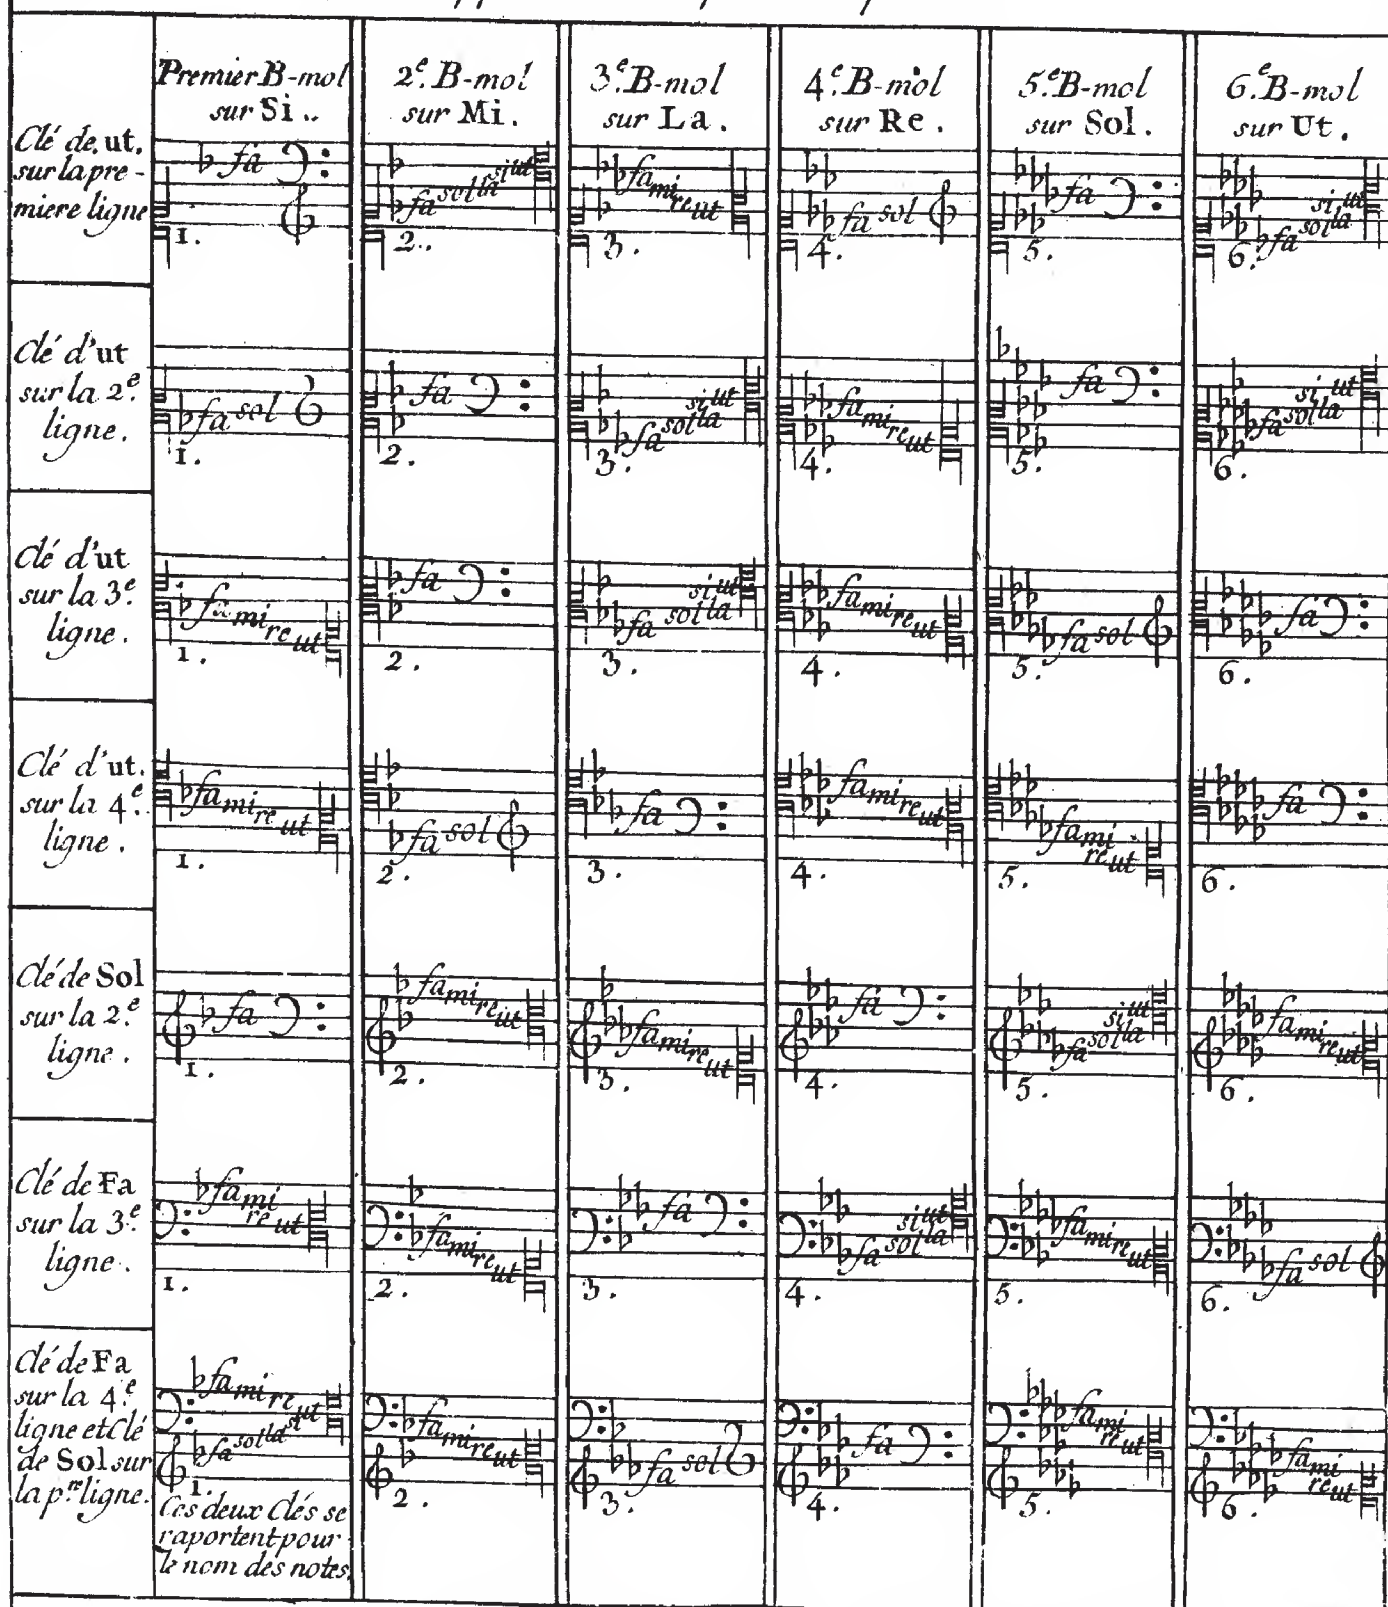 Premier B-mol
sur Si..
2.e B-mol
sur Mi.
3.e B-mol
sur La.
4.e B-mol
sur Re.
5.e B-mol
sur Sol.
6.e B-mol
sur Ut.
Clé de. ut.
sur la pre-
miere ligne
fa
1.
fa sol la si ut
2..
fa mi re ut
3.
fa sol
4.
fa
5.
fa sol la si ut
6.
Clé d'ut
sur la 2.e
ligne.
fa sol
1.
fa
2.
fa sol la si ut
3.
fa mi re ut
4.
fa
5.
fa sol la si ut
6.
Clé d'ut
sur la 3.e
ligne.
fa mi re ut
1.
fa
2.
fa sol la si ut
3.
fa mi re ut
4.
fa sol
5.
fa
6.
Clé d'ut.
sur la 4.e
ligne.
fa mi re ut
1.
fa sol
2.
fa
3.
fa mi re ut
4.
fa mi
re ut
5.
fa
6.
Clé de Sol
sur la 2.e
ligne.
fa
1.
fa mi re ut
2.
fa mi re ut
3.
fa
4.
fa sol la si ut
5.
fa mi re ut
6.
Clé de Fa
sur la 3.e
ligne.
fa mi
re ut
1.
fa mi re ut
2.
fa
3.
fa sol la si ut
4.
fa mi re ut
5.
fa sol
6.
Clé de Fa
sur la 4.e
ligne et Clé
de Sol sur
la p.re ligne.
fa mi re ut
fa sol la si
1.
Ces deux Clés se
raportent pour
le nom des notes.
fa mi re ut
2.
fa sol
3.
fa
4.
fa mi
re ut
5.
fa mi
re ut
6.